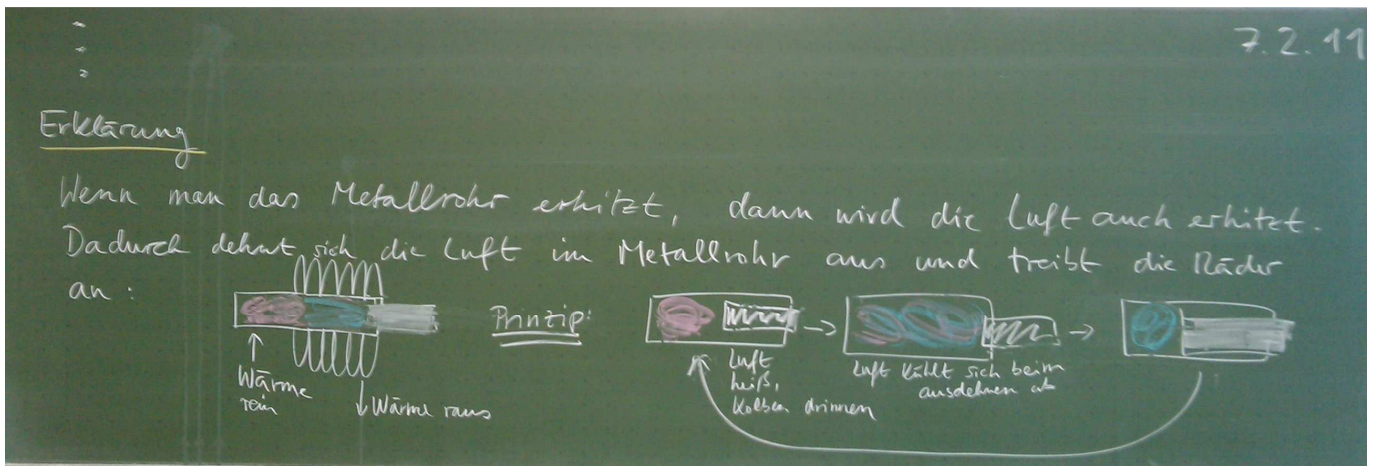 7.2.11
Erklärung
Wenn man das Metallrohr erhitzt, dann wird die Luft auch erhitzt.
Dadurch dehnt sich die Luft im Metallrohr aus und treibt die Räder
an:
Prinzip:
Wärme
rein
Wärme raus
Luft
heiß,
Kolben drinnen
Luft kühlt sich beim
ausdehnen ab